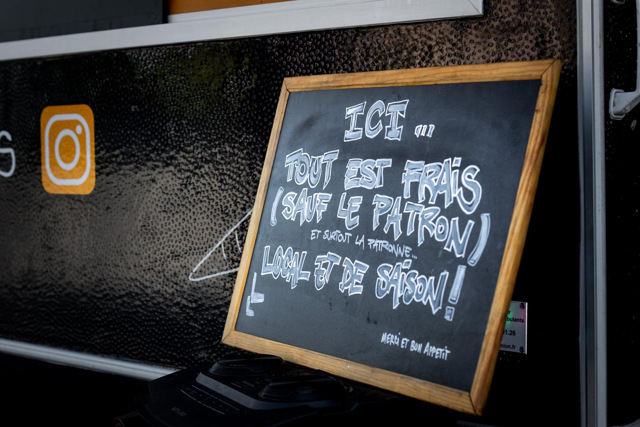 S
ICI ...
TOUT EST FRAIS
(SAUF LE PATRON)
ET SURTOUT LA PATRONNE...
LOCAL ET DE SAISON !
MERCI ET BON APPETIT